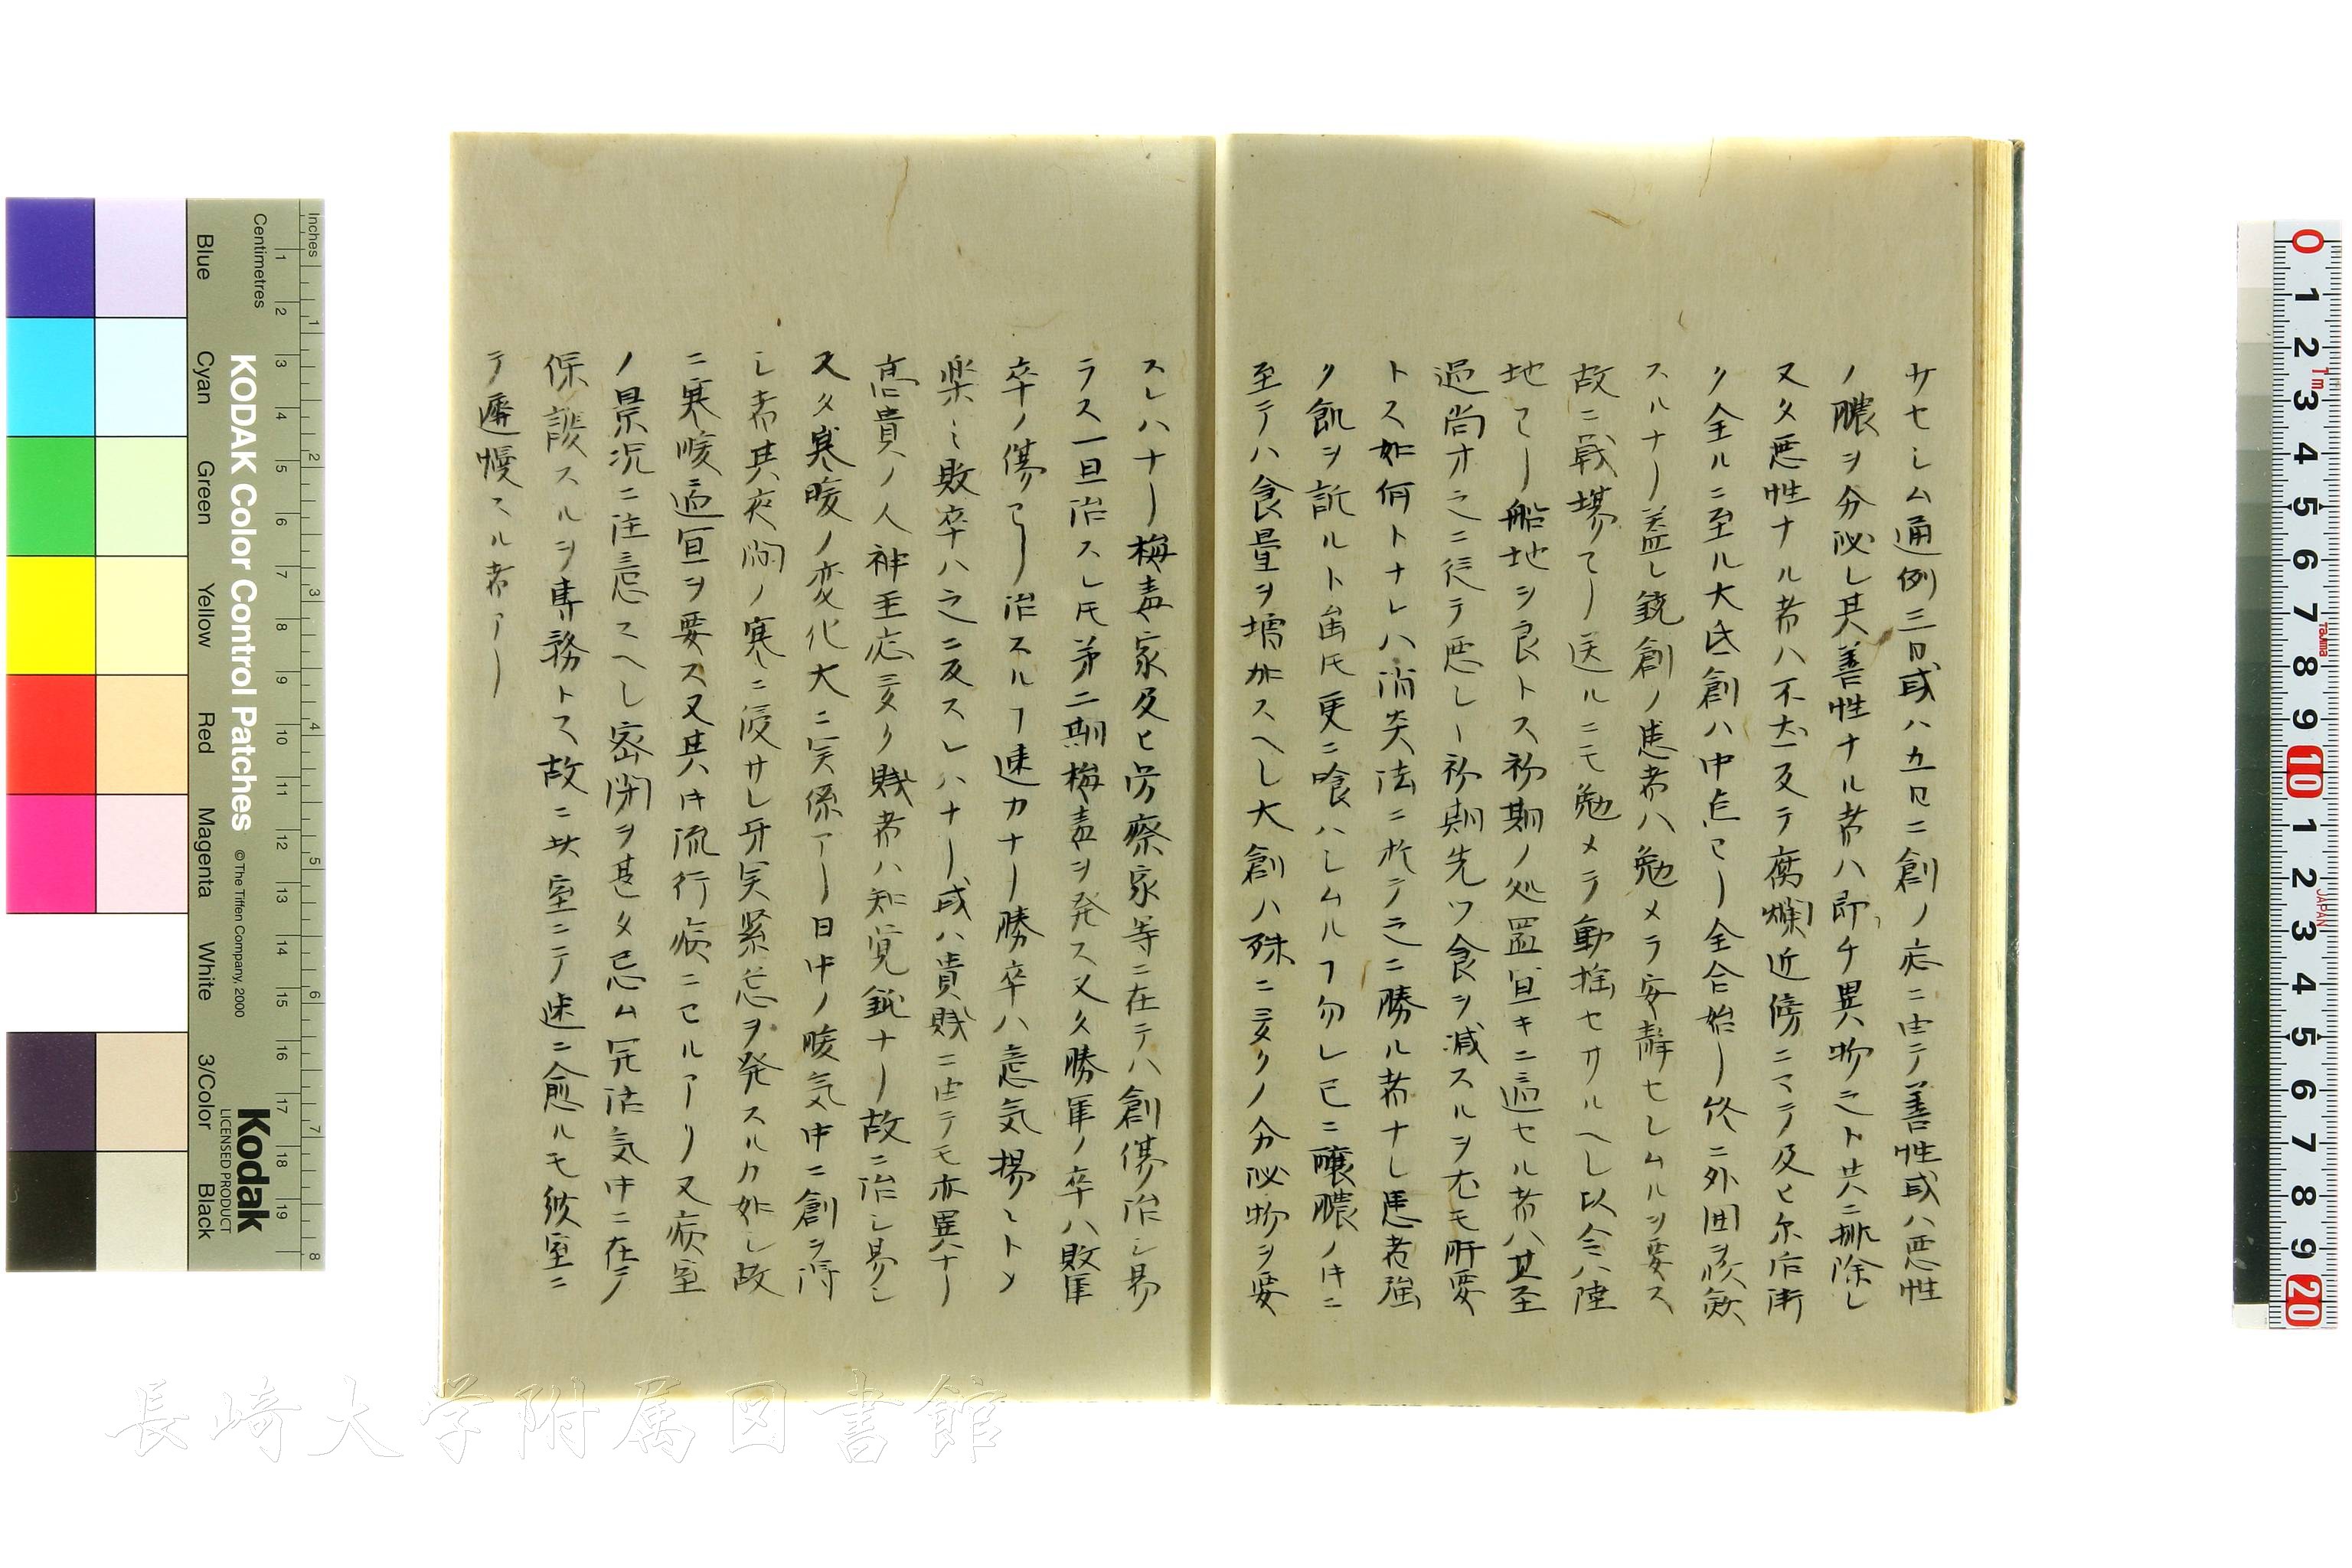 サセシム通例三日或ハ五日ニ創ノ応ニ由テ善性或ハ悪性
ノ膿ヲ分泌し其善性ナル者ハ即チ異物之ト共ニ排除し
又タ悪性ナル者ハ不及テ腐爛近傍ニマテ及ヒ尓后漸
ク全ルニ至ル大氐創ハ中点ヨリ全合始リ終ニ外囲ヲ
スルナリ蓋し銃創ノ患者ハ勉メテ安静セシムルヲ要ス
故ニ戦場ヨリ送ルニモ勉メテ動揺セサルヘし以会ハ陸
地ヨリ船地ヲ良トス初期ノ処置宜キニ適セル者ハ其至
過尚オ之ニ従テ悪しー初期先ツ食ヲ減スルヲ尤モ肝要
トス如何トナレハ消炎法ニ於テ之ニ勝ル者ナし患者強
ク飢ヲ訴ルト雖𪜈更ニ喰ハシムルヿ勿レ已ニ醸膿ノ㐧ニ
至テハ食量ヲ増加スヘし大創ハ殊ニ多クノ分泌物ヲ要
スレハナリ梅毒家及ヒ労瘵家等ニ在テハ創傷治し易
ラス一旦治スレ𪜈第二期梅毒ヲ発ス又タ勝軍ノ卒ハ敗軍
卒ノ傷ヨリ治スルヿ速カナリ勝卒ハ意気揚ヽトメ
楽ミ敗卒ハ之ニ反スレハナリ或ハ貴賎ニ由テモ亦異ナリ
高貴ノ人神主応多ク賎者ハ知覚鈍ナリ故ニ治シ易シ
又タ寒暖ノ変化大ニ関係アリ日中ノ暖気中ニ創ヲ得
し者其夜間ノ寒ニ侵サレ牙関緊急ヲ発スルカ如し故
ニ寒暖適宜ヲ要ス又其時流行病ニセルアリ又病室
ノ景況ニ注意スヘし密閉ヲ甚タ忌ム気中ニ在テ
保護スルヲ専務トス故ニ此室ニテ速ニ愈ルモ彼室ニ
テ遅慢スル者アリ
Inches
Centimetres
Blue
Cyan
Green
Yellow
Red
Magenta
White
3/Color
Black
KODAK Color Control Patches
©The Tiffen Company, 2000
Kodak
LICENSED PRODUCT
長崎大学附属図書館